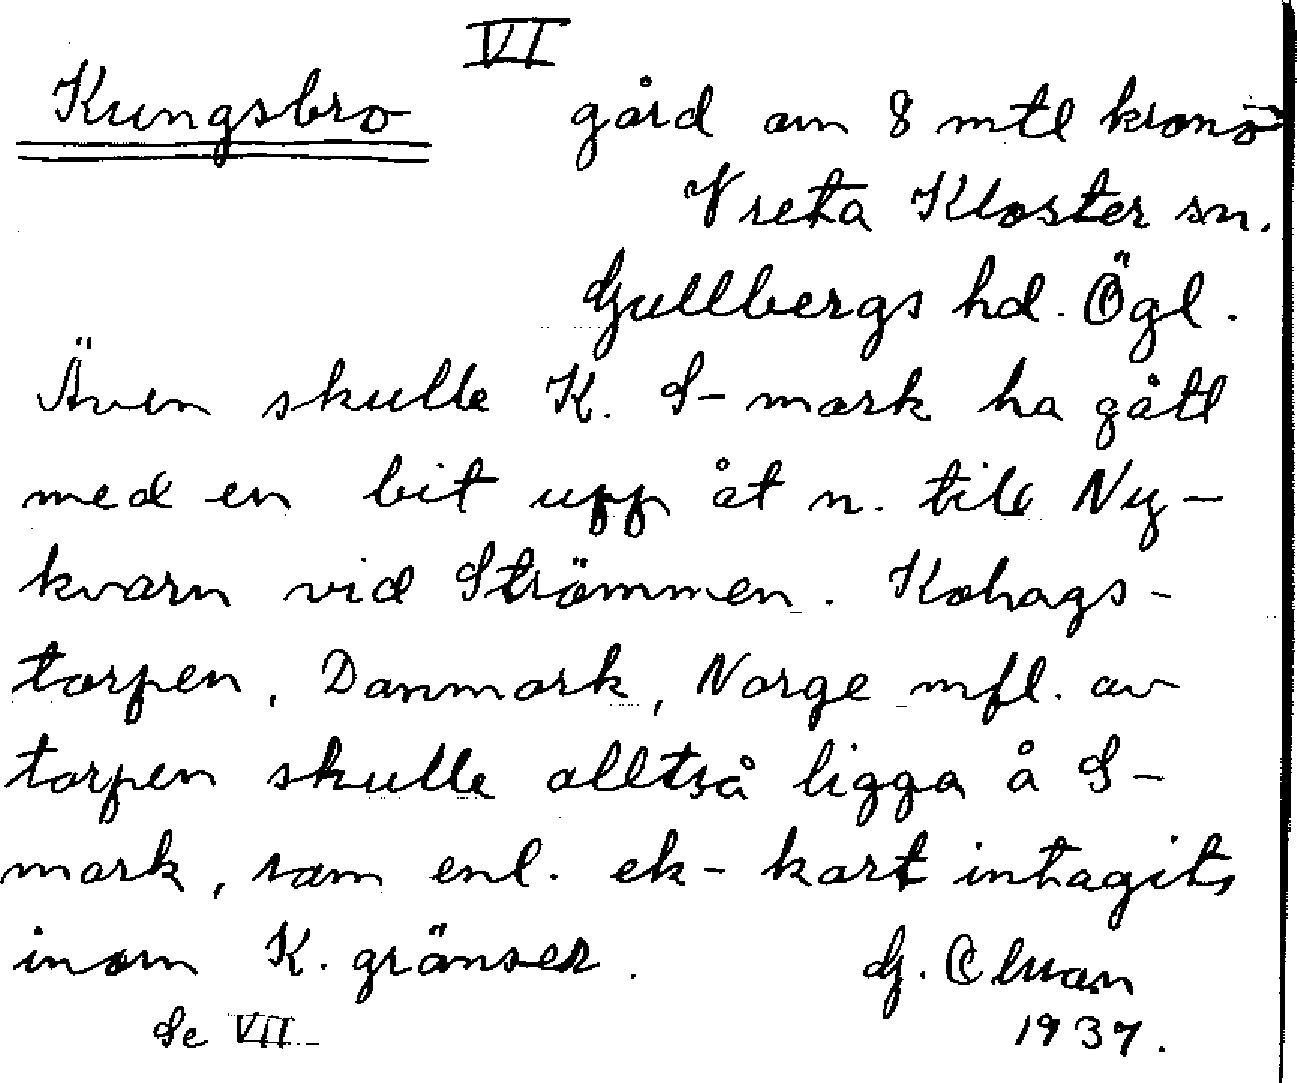 VI
Kungsbro gård om 8 mtl krono
Vreta Kloster sn.
Gullbergs hd. Ögl.
Även skulle K. S-mark ha gått
med en bit upp åt n. till Ny-
kvarn vid Strömmen. Kohags-
torpen, Danmark, Norge mfl. av
torpen skulle alltså ligga å S-
mark, som enl. ek-kart intagits
inom K. gränser.
G.
Se VII 1937.